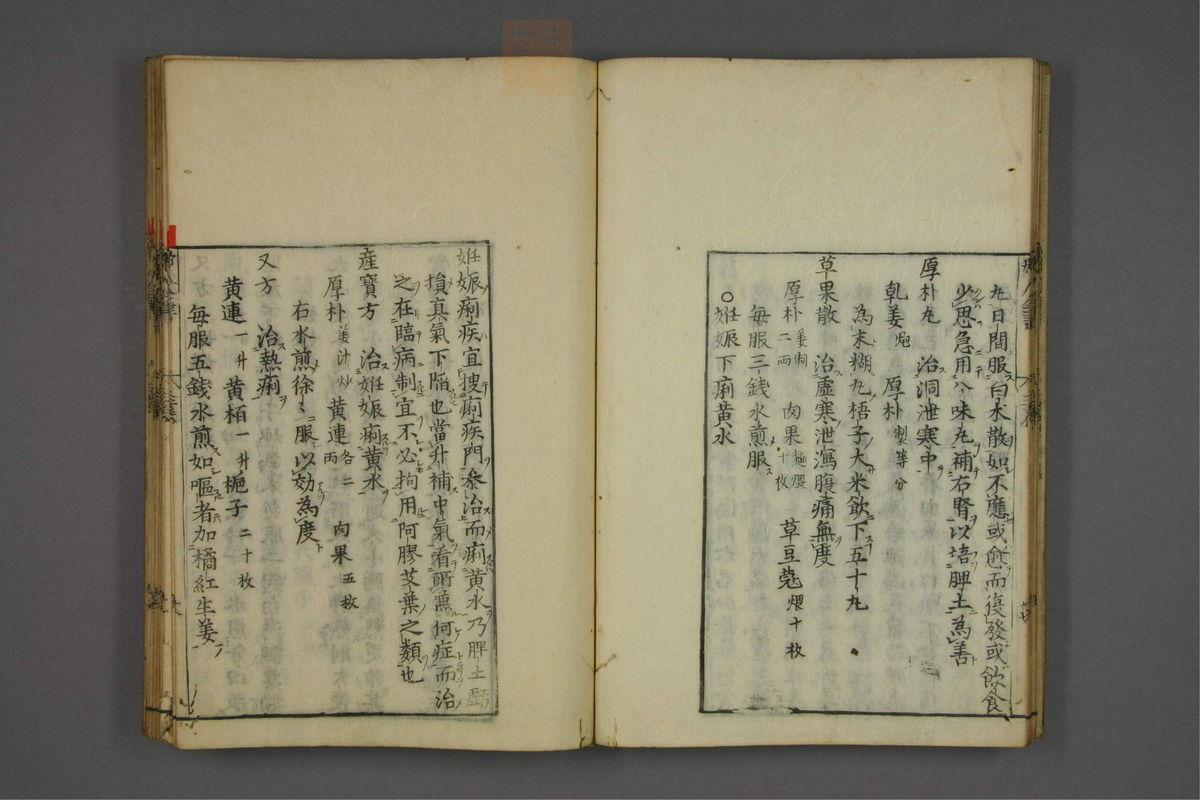 丸日間服白朮散如不應或愈而復發或飲食
少思急用八味丸補右腎以培脾土為善
厚朴丸　治洞泄寒中
乾姜炮　厚朴製等分
為末糊丸梧子大米飲下五十丸
草果散　治虛寒泄瀉腹痛無度
厚朴二兩姜制　肉果十枚麺煨　草豆蔲煨十枚
每服三錢水煎服
○姙娠下痢黄水
姙娠痢疾宜捜痢疾門參治而痢黄水乃脾土虧
損真氣下陥也當升補中氣看所兼何症而治
之在臨病制宜不必拘用阿膠艾葉之類也
産寶方　治姙娠痢黄水
厚朴姜汁炒　黄連各二兩　肉果五枚
右水煎徐〻服以効為度
又方　治熱痢
黄連一升　黄栢一升　梔子二十枚
每服五錢水煎如嘔者加橘紅生姜